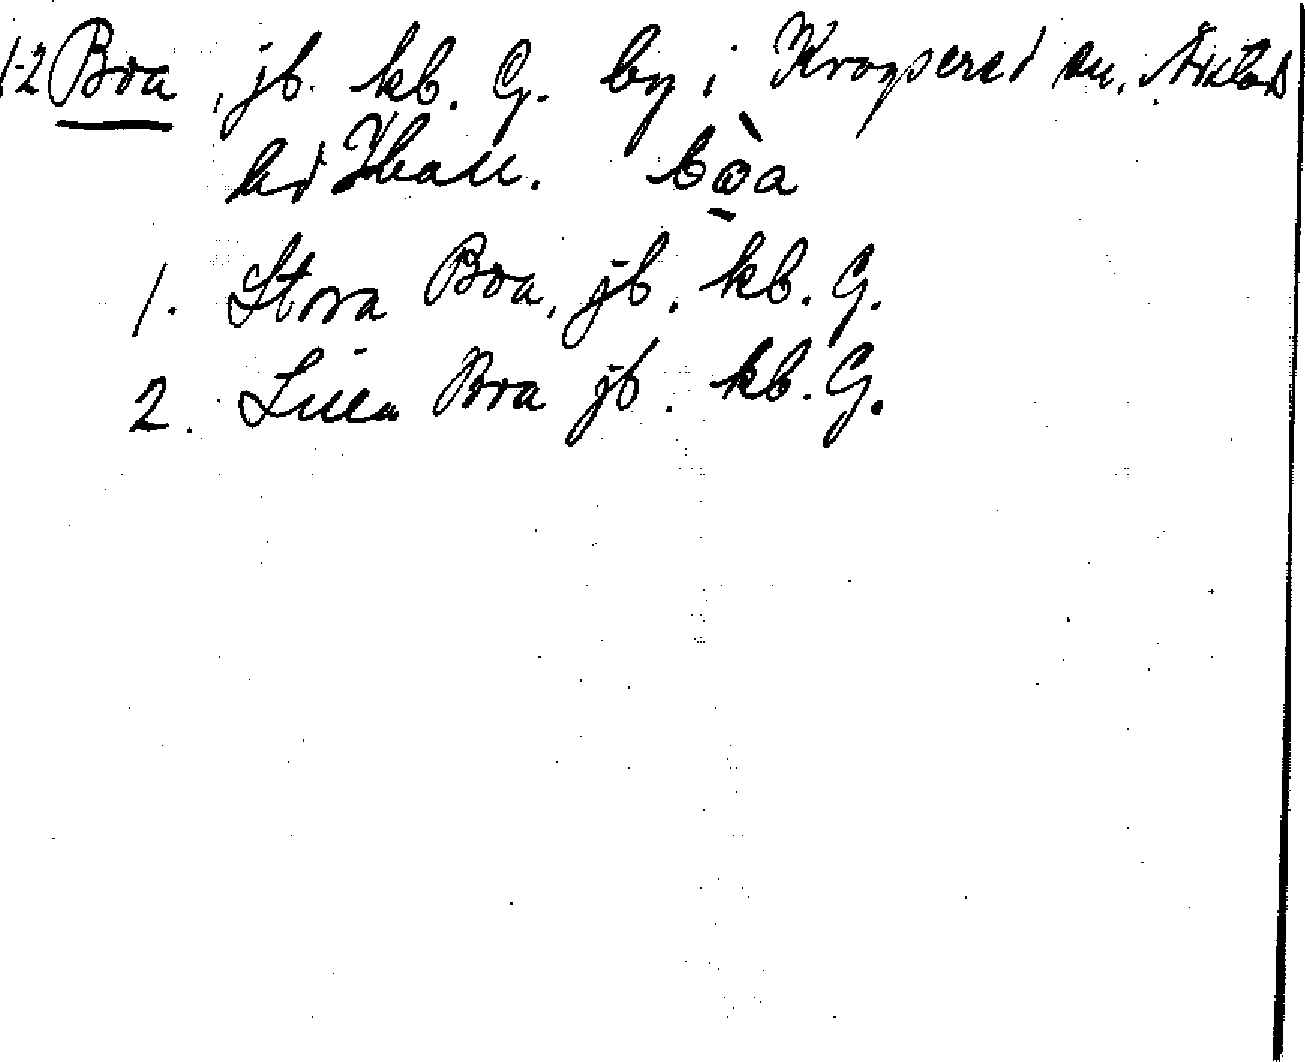 1-2 Boa, jb. kb. G. by i Krogsered sn, Årstads
hd Hall. bò̱̱a
1. Stora Boa, jb. kb. G.
2. Lilla Boa jb. kb. G.